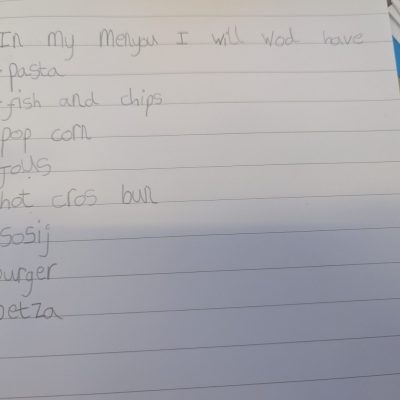 In my Menyou I will wod have
- pasta
- fish and chips
pop corn
hot cros bun
sosij
burger
petza